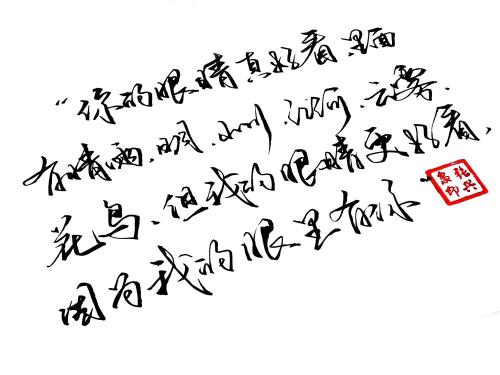 “你的眼睛真好看,里面
有晴雨、日月、山川、江河、云雾、
花鸟,但我的眼睛更好看,
因为我的眼里有你”